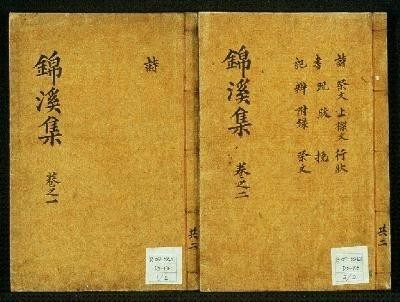 共二
詩
錦溪集
卷之一
1/2
共二
詩 祭文 上樑文 行狀
書 挽
記 辨 附錄 祭文
錦溪集
卷之二
2/2